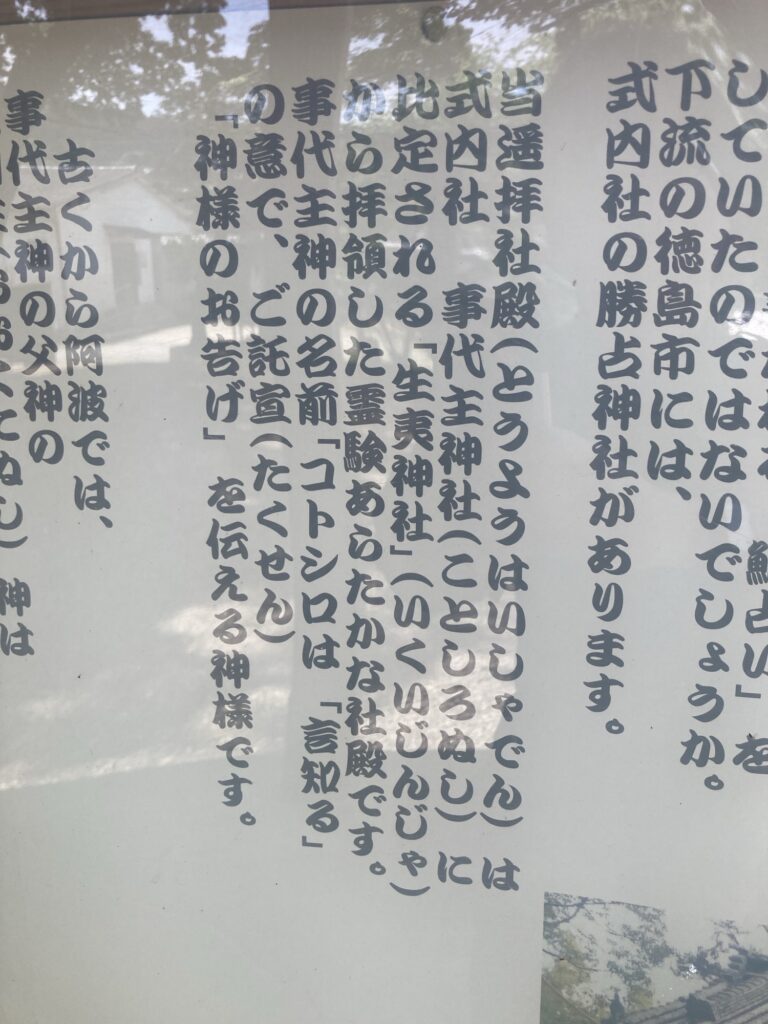 鮎占い」を
していたのではないでしょうか。
下流の徳島市には、
式内社の勝占神社があります。
当遥拝社殿(とうようはいしゃでん)は
式内社　事代主神社(ことしろぬし)に
比定される「生夷神社」(いくいじんじゃ)
から拝領した霊験あらたかな社殿です。
事代主神の名前「コトシロは「言知る」
の意で、ご託宣(たくせん)
「神様のお告げ」を伝える神様です。
古くから阿波では、
事代主神の父神の
ぬし)神は